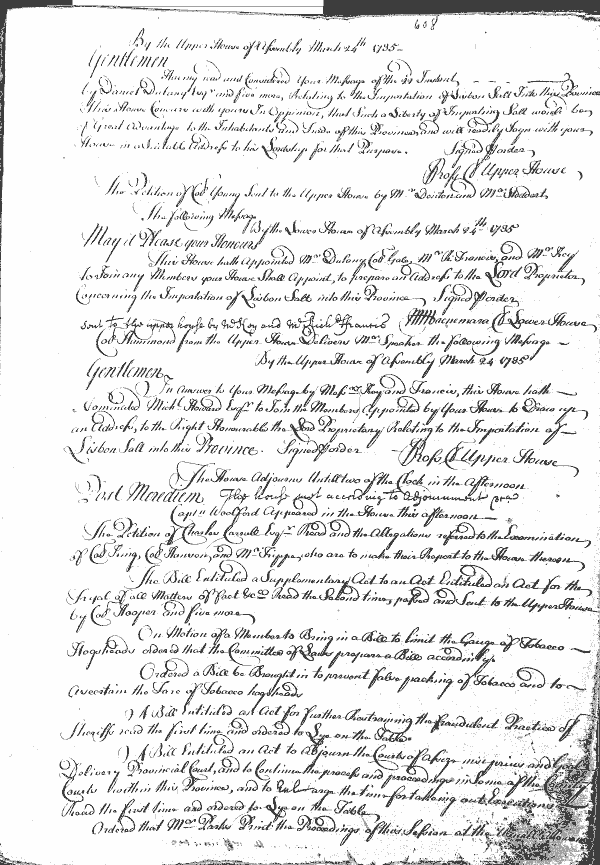 608
By the Upper House of Assembly March 24th 1735
Gentlemen
Having read and Considered Your Message of the 22 Instant
by Daniel Dulany Esqr and five more, Relating to the Importation of Lisbon Salt Into this Province
This House Concurs with yours In Oppinion, that Such a Liberty of Importing Salt would be
of Great Advantage to the Inhabitants and Trade of this Province and will readily Joyn with your
House in a Suitable Address to his Lordship for that Purpose. Signed p order
Ross Cl Upper House
The Petition of Col Young Sent to the Upper House by Mr Denton and Mr Stoddart
The following Message
By the Lower House of Assembly March 24th 1735
May it Please your Honours
This House hath Appointed Mr Dulany, Col Gale, Mr Tk Francis, and Mr Key
to Join any Members your House Shall Appoint, to prepare an Address to the Lord Proprietor
Concerning the Importation of Lisbon Salt into this Province Signed p order
sent to the upper house by Mr Key and Mr Francis MMacnemara Cl Lower House
Col Hammond from the Upper House Delivers Mr Speaker the following Message
By the Upper House of Assembly March 24 1735
Gentlemen
In Answer to Your Message by Messrs Key and Francis, this House hath
Nominated Mich Howard Esqr to Join the Members Appointed by Your House to Draw up
an Address, to the Right Honourable the Lord Proprietary Relating to the Importation of
Lisbon Salt into this Province. Signed p order Ross Cl Upper House
The House Adjourns Untill two of the Clock in the Afternoon
Post Meridiem The house met according to adjournment
Captn Woolford Appeared in the House this afternoon
The Petition of Charles Carroll Esqr Read and the Allegations referred to the Examination
of Col King, Col Hanson, and Mr Trippe, who are to make their Report to the House thereon
The Bill Entituled a Supplementary Act to an Act Entituled an Act for the
Tryal of all Matters of fact &ca Read the Second time, passed and Sent to the Upper House
by Col Hooper and five more
On Motion of a Member to Bring in a Bill to limit the Gauge of Tobacco
Hogsheads ordered that the Committee of Laws prepare a Bill accordingly
Ordered a Bill be Brought in to prevent false packing of Tobacco and to
ascertain the Tare of Tobacco hogsheads
A Bill Entituled an Act for further Restraining the fraudulent Practice of
Sheriffs read the first time and ordered to Lye on the Table
A Bill Entituled an Act to Adjourn the Courts of Assize nisi prius and Goal
Delivery Provincial Court, and to Continue the process and proceedings in Some of the County
Courts within this Province, and to Enlarge the time for taking out Executions
Read the first time and ordered to Lye on the Table
Ordered that Mr Parks Print the Proceedings of this Session at the